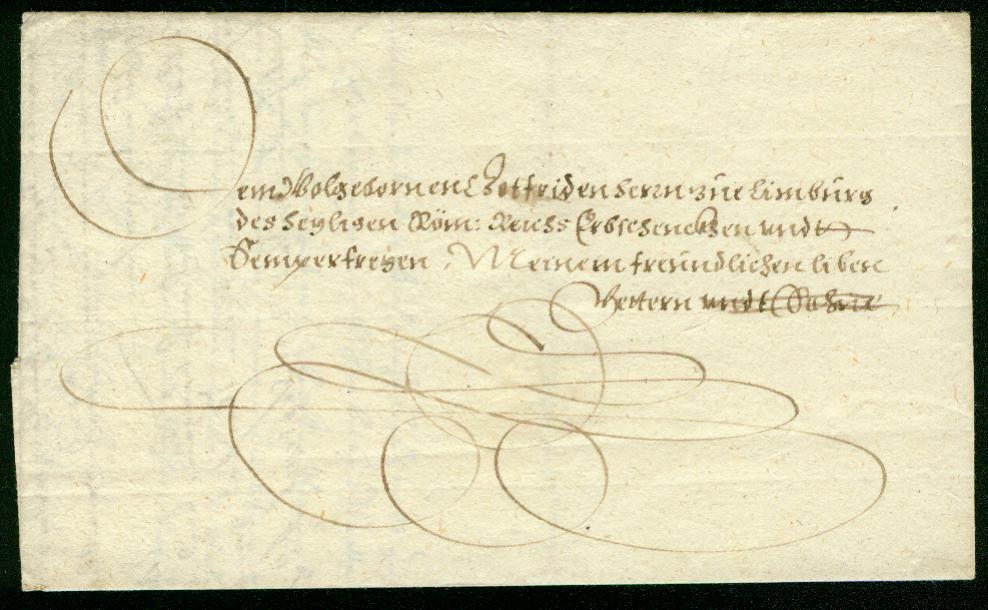 Dem Wolgebornen Gotfriden herrn zue Limburg
des heyligen Röm: Reichs Erbschencken undt
Semperfreyen. Meinem freundlichen lieben
Vettern undt Sohne